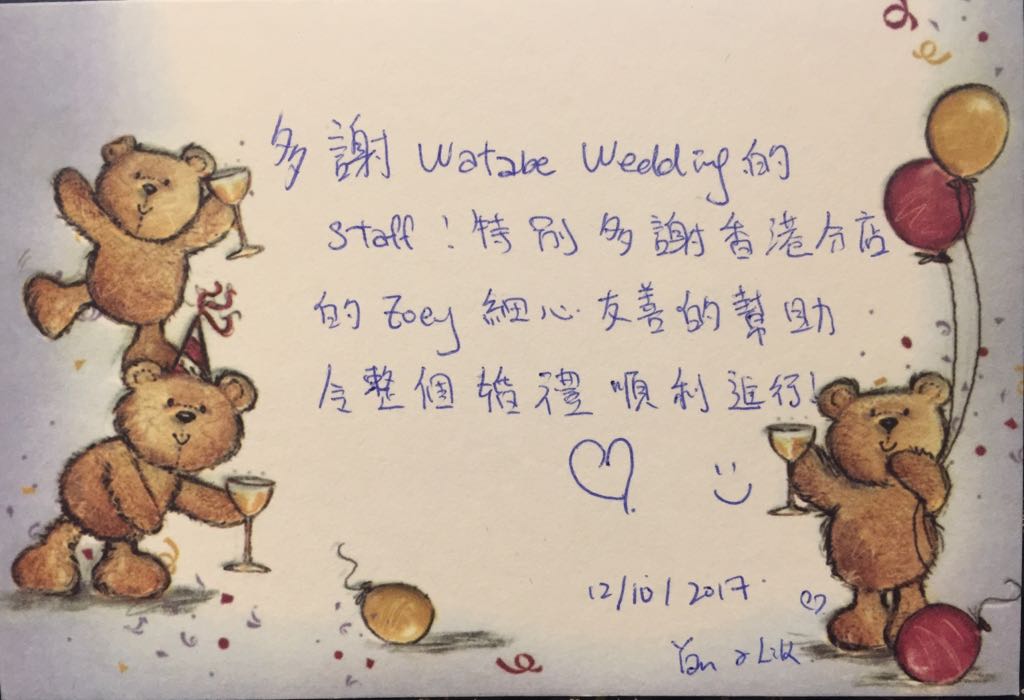 多謝 Watabe Wedding 的
staff！特別多謝香港分店
的 Zoey 細心友善的幫助
令整個婚禮順利進行！
12/10/2017
Yan &